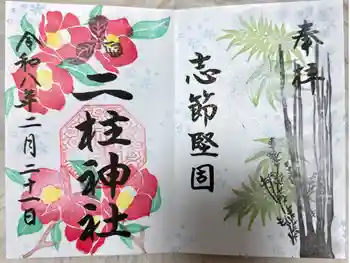 奉拝
志節堅固
二柱神社
令和八年二月二十一日